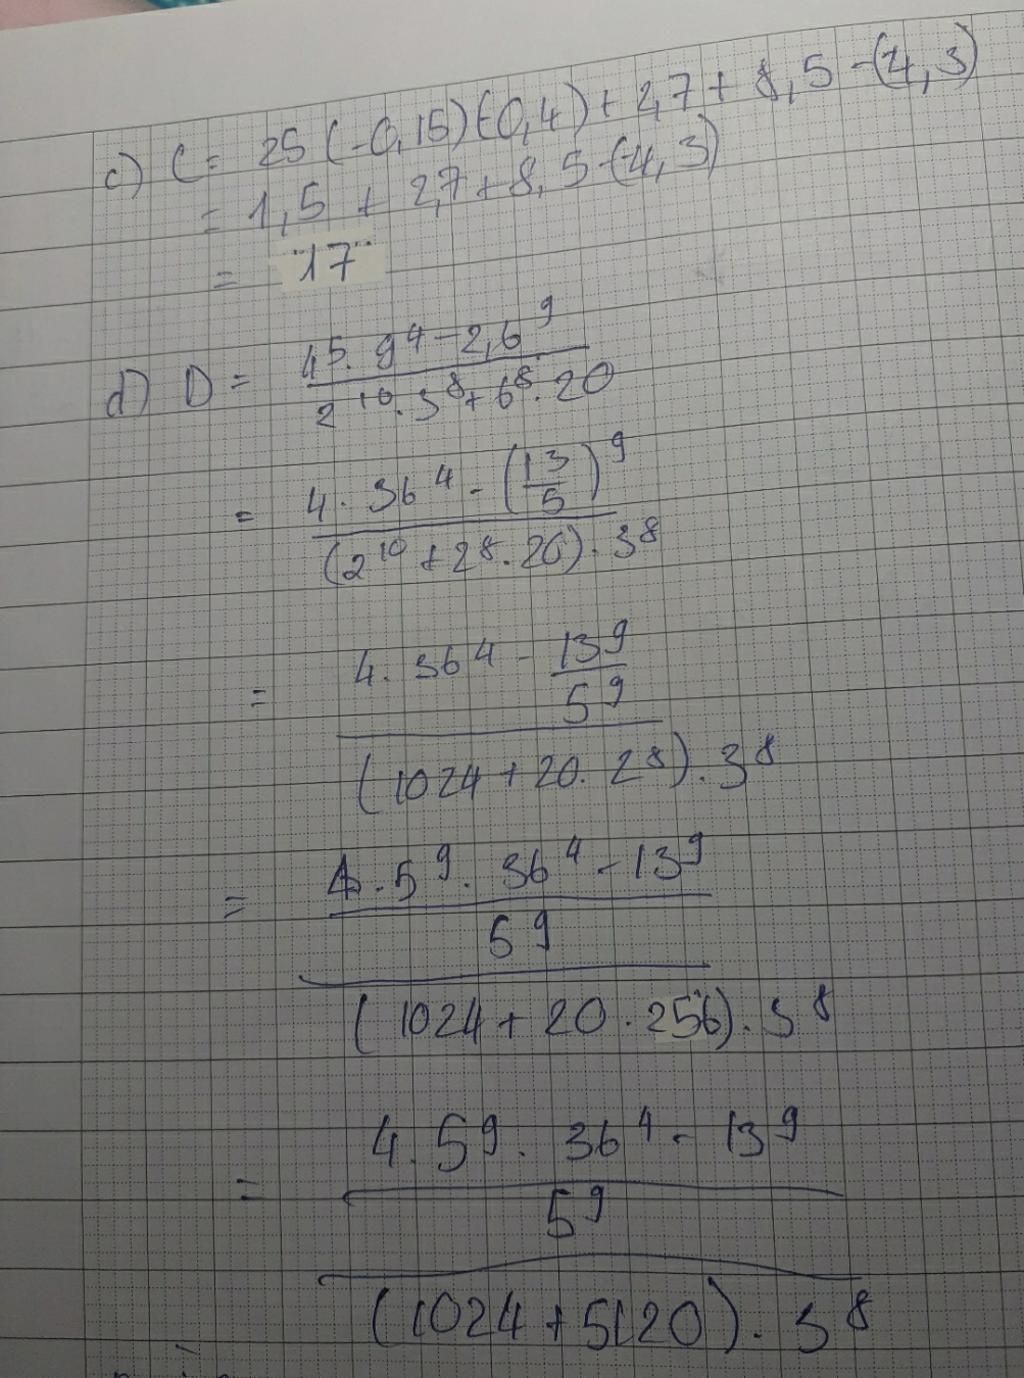 c) C = 25(-0,15)(-0,4) + 2,7 + 8,5 - (-4,3)
= 1,5 + 2,7 + 8,5 - (-4,3)
= 17
d) D = 4^5 . 9^4 - 2,6^9
2^10 . 3^8 + 6^8 . 20
= 4 . 36^4 - (13/5)^9
(2^10 + 2^8 . 20) . 3^8
= 4 . 36^4 - 13^9
5^9
(1024 + 20 . 2^8) . 3^8
= 4 . 5^9 . 36^4 - 13^9
5^9
(1024 + 20 . 256) . 3^8
= 4 . 5^9 . 36^4 - 13^9
5^9
(1024 + 5120) . 3^8